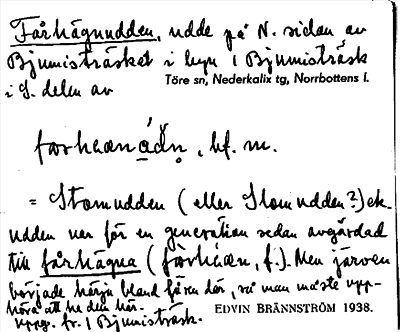 Fårhägnudden, udde på N. sidan av
Bjumisträsket i byn i Bjumisträsk
Töre sn, Nederkalix tg, Norrbottens l.
i S. delen av
bf. m.
= Stomudden ( eller Slomudden?) ek.
udden var för en generation sedan avgärdad
till fårhägna ( f.). Men järven
började härja bland fåren där, så man måste upp-
höra att ha den här.
Uppg. fr. i Bjumisträsk.
EDVIN BRÄNNSTRÖM 1938.